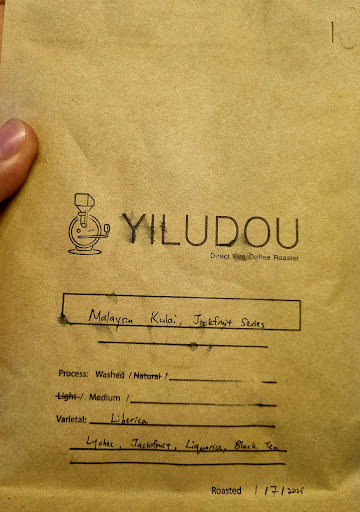 10
YILUDOU
Direct Fire Coffee Roaster
Malaysia Kulai, Jackfruit Series
Process: Washed / Natural /
Light / Medium /
Varietal: Liberica
Lychee, Jackfruit, Liquorice, Black Tea
Roasted 1/7/2025